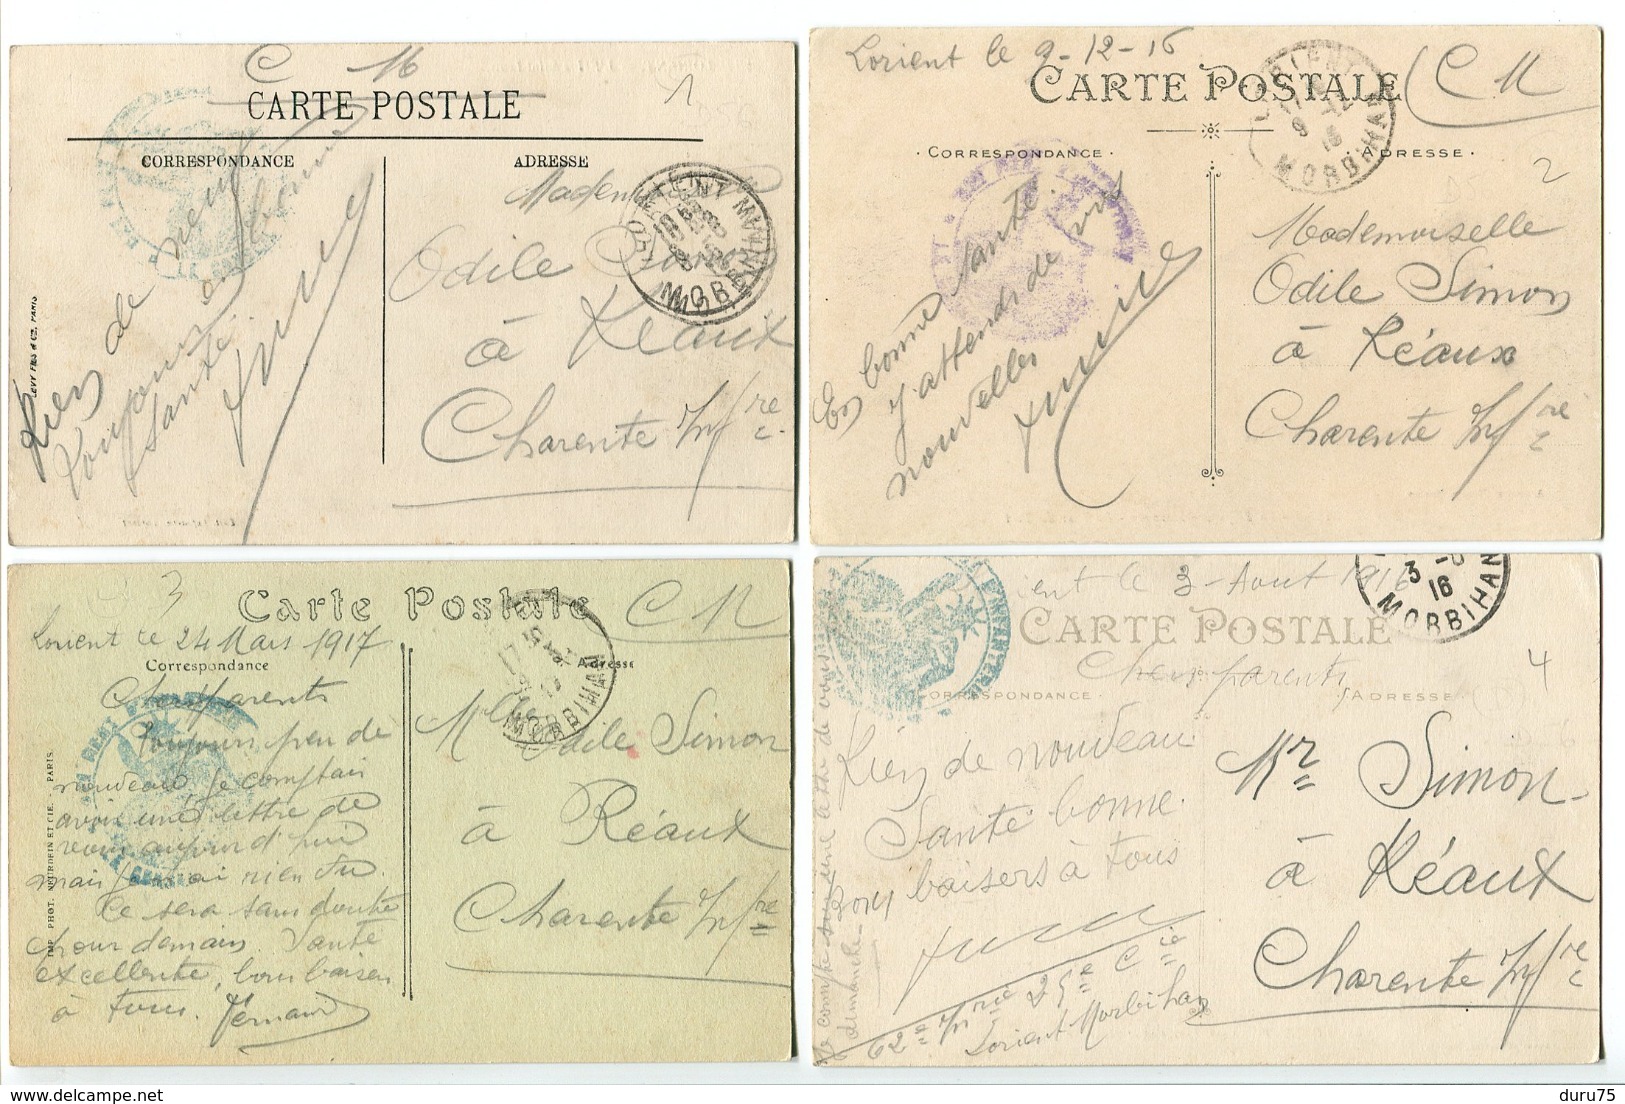 C M
CARTE POSTALE
1
CORRESPONDANCE
ADRESSE
Rien de neuf
Toujours en bonne
santé
LEVY FILS & CIE, PARIS
Mademoiselle
Odile Simon
à Réaux
Charente Inf.re
MORBIHAN
Lorient le 9-12-16
CARTE POSTALE
C M
2
CORRESPONDANCE
ADRESSE
LORIENT
9 12
16
MORBIHAN
En bonne santé.
J'attends de vos
nouvelles
Mademoiselle
Odile Simon
à Réaux
Charente Inf.re
3
Carte Postale
C M
Lorient le 24 Mars 1917
Correspondance
Adresse
MORBIHAN
Chers parents
Toujours peu de
nouveau. Je comptais
avoir une lettre de
vous aujourd'hui
mais je n'ai rien eu.
Ce sera sans doute
pour demain. Santé
excellente, bons baisers
à tous. Fernand
IMP. PHOT. NEURDEIN ET CIE. PARIS.
Mlle Odile Simon
à Réaux
Charente Inf.re
ient le 3 Aout 1916
3 -
16
MORBIHAN
D'INFANTERIE
CARTE POSTALE
Chers parents
4
CORRESPONDANCE
ADRESSE
Rien de nouveau
Santé bonne.
Bons baisers à tous
Je compte sur une lettre de vous
dimanche
62e Inf.rie 25e Cie
Lorient Morbihan
Mr Simon
à Réaux
Charente Inf.re
duru75